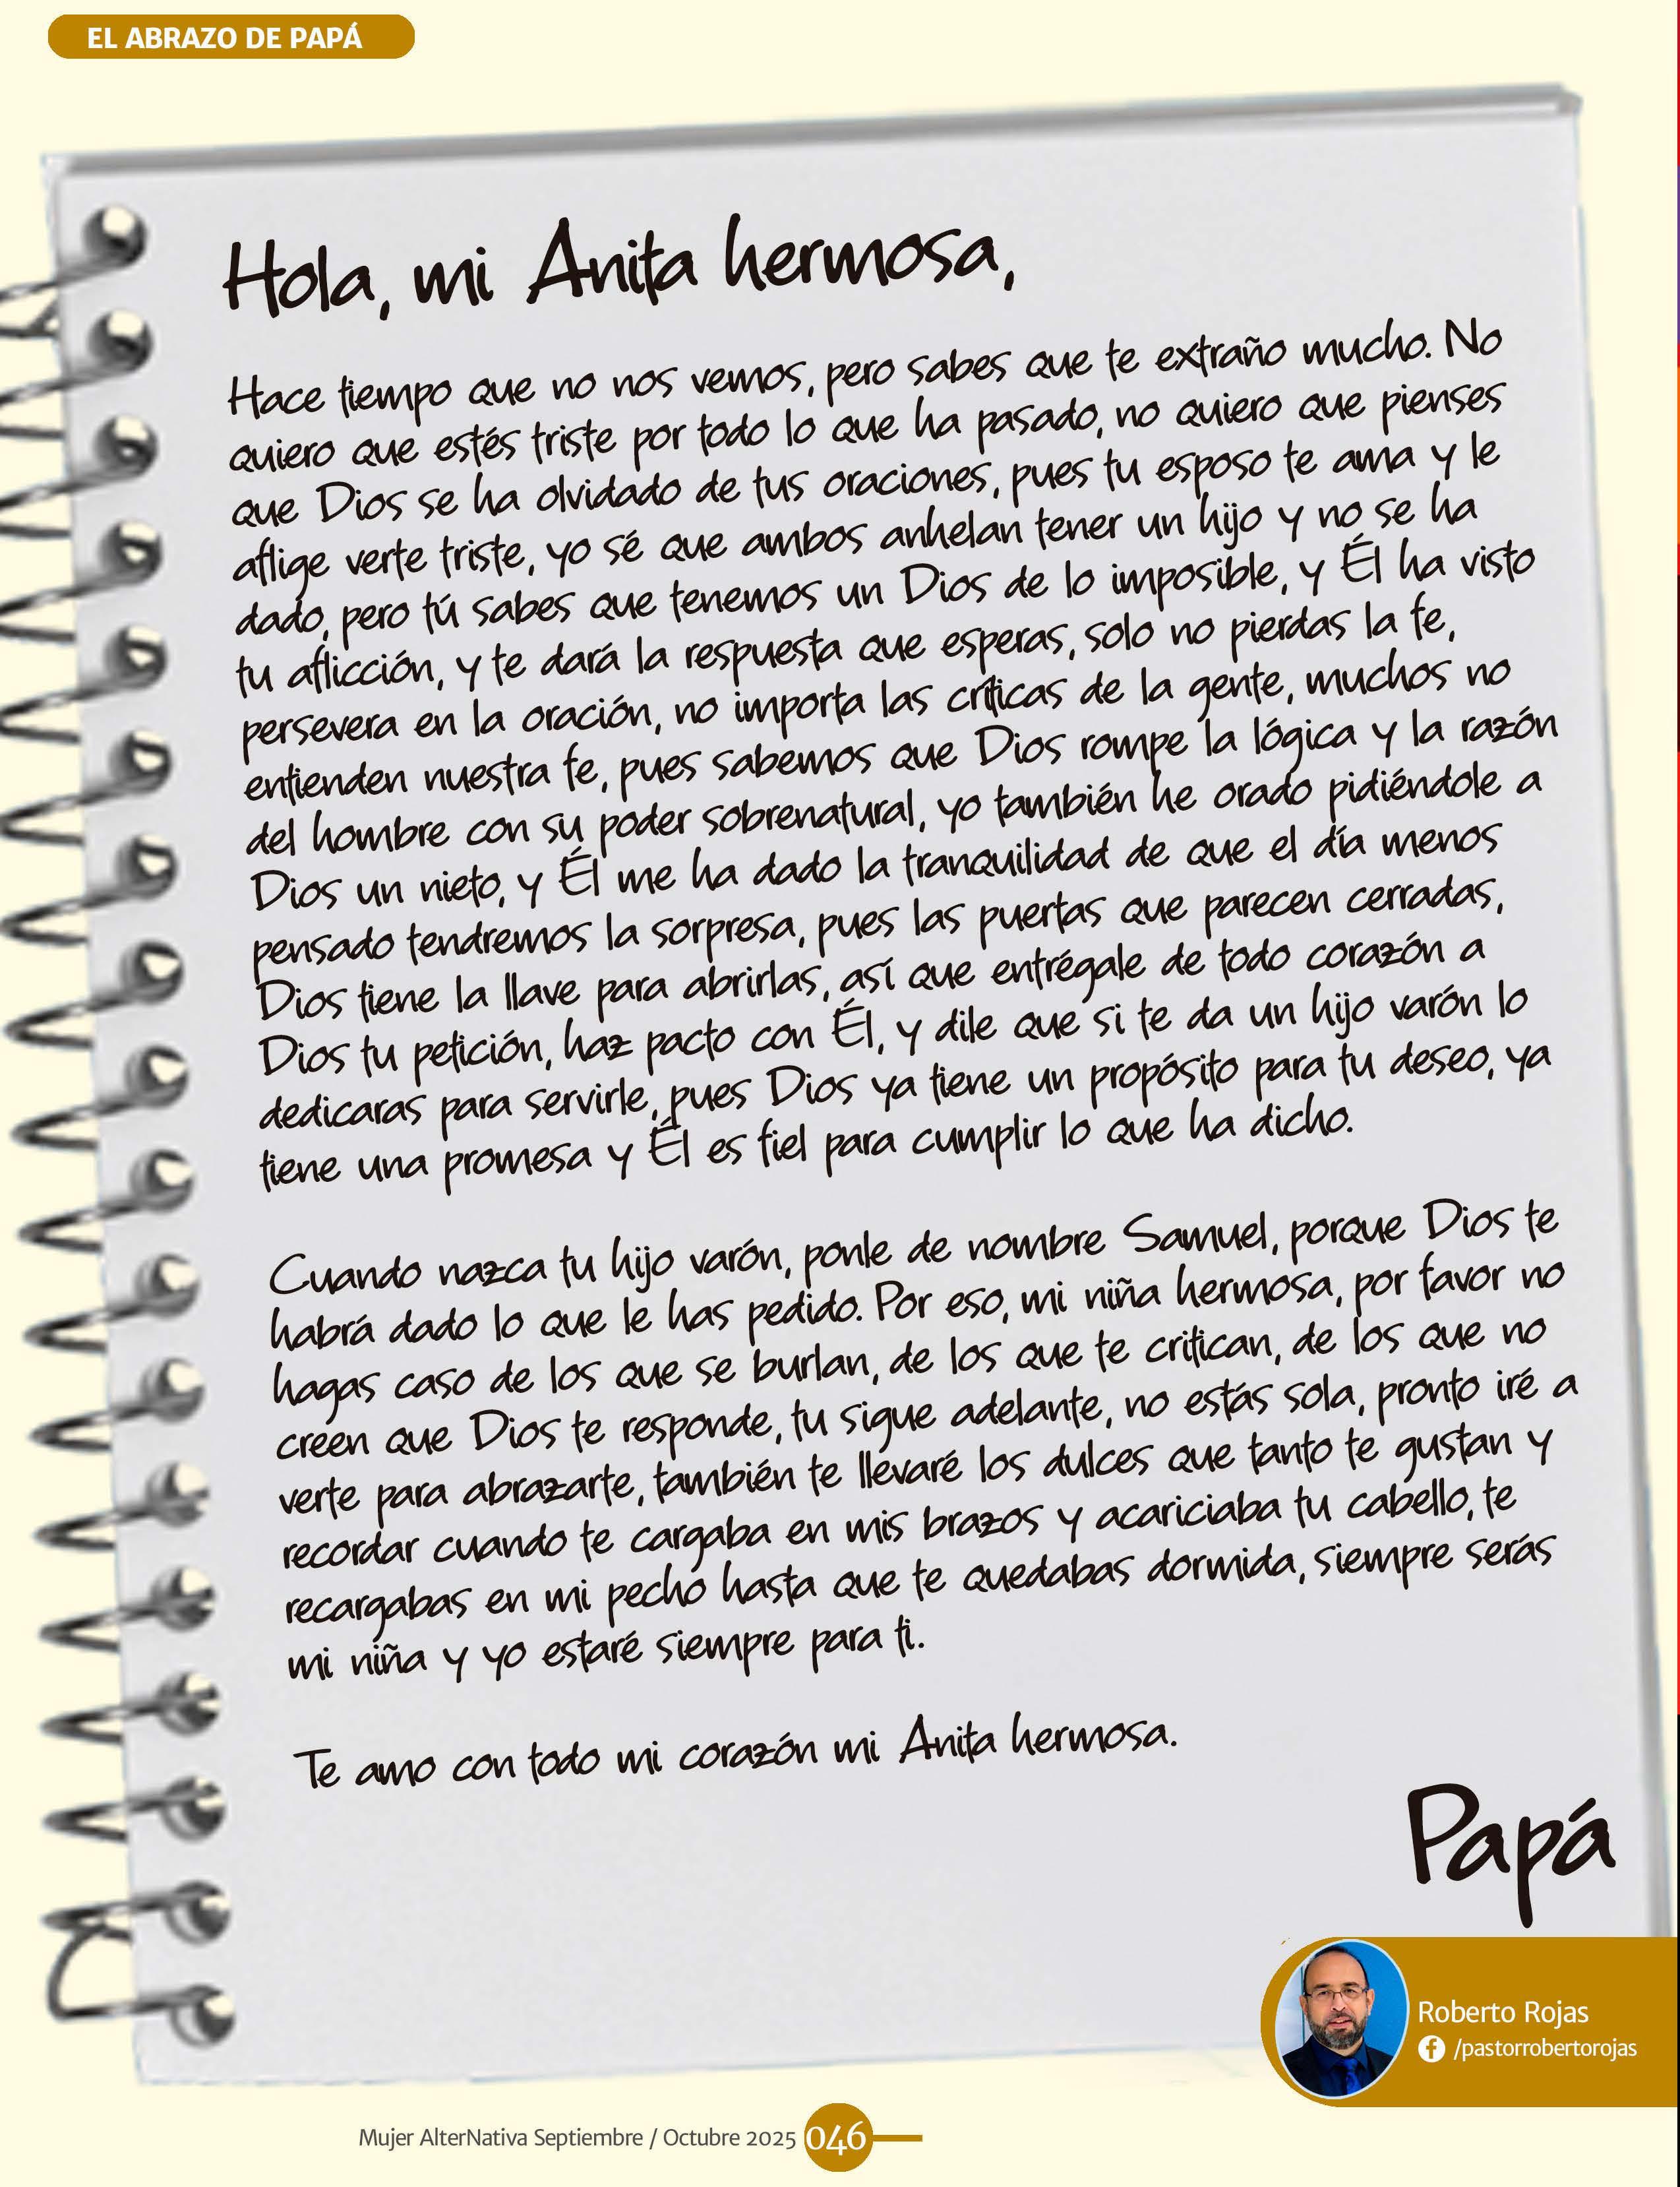 EL ABRAZO DE PAPÁ
Hola, mi Anita hermosa,
Hace tiempo que no nos vemos, pero sabes que te extraño mucho. No
quiero que estés triste por todo lo que ha pasado, no quiero que pienses
que Dios se ha olvidado de tus oraciones, pues tu esposo te ama y le
aflige verte triste, yo sé que ambos anhelan tener un hijo y no se ha
dado, pero tú sabes que tenemos un Dios de lo imposible, y Él ha visto
tu aflicción, y te dará la respuesta que esperas, solo no pierdas la fe,
persevera en la oración, no importa las críticas de la gente, muchos no
entienden nuestra fe, pues sabemos que Dios rompe la lógica y la razón
del hombre con su poder sobrenatural, yo también he orado pidiéndole a
Dios un nieto, y Él me ha dado la tranquilidad de que el día menos
pensado tendremos la sorpresa, pues las puertas que parecen cerradas,
Dios tiene la llave para abrirlas, así que entrégale de todo corazón a
Dios tu petición, haz pacto con Él, y dile que si te da un hijo varón lo
dedicaras para servirle, pues Dios ya tiene un propósito para tu deseo, ya
tiene una promesa y Él es fiel para cumplir lo que ha dicho.
Cuando nazca tu hijo varón, ponle de nombre Samuel, porque Dios te
habrá dado lo que le has pedido. Por eso, mi niña hermosa, por favor no
hagas caso de los que se burlan, de los que te critican, de los que no
creen que Dios te responde, tu sigue adelante, no estás sola, pronto iré a
verte para abrazarte, también te llevaré los dulces que tanto te gustan y
recordar cuando te cargaba en mis brazos y acariciaba tu cabello, te
recargabas en mi pecho hasta que te quedabas dormida, siempre serás
mi niña y yo estaré siempre para ti.
Te amo con todo mi corazón mi Anita hermosa.
Papá
Roberto Rojas
/pastorrobertorojas
Mujer AlterNativa Septiembre / Octubre 2025 046